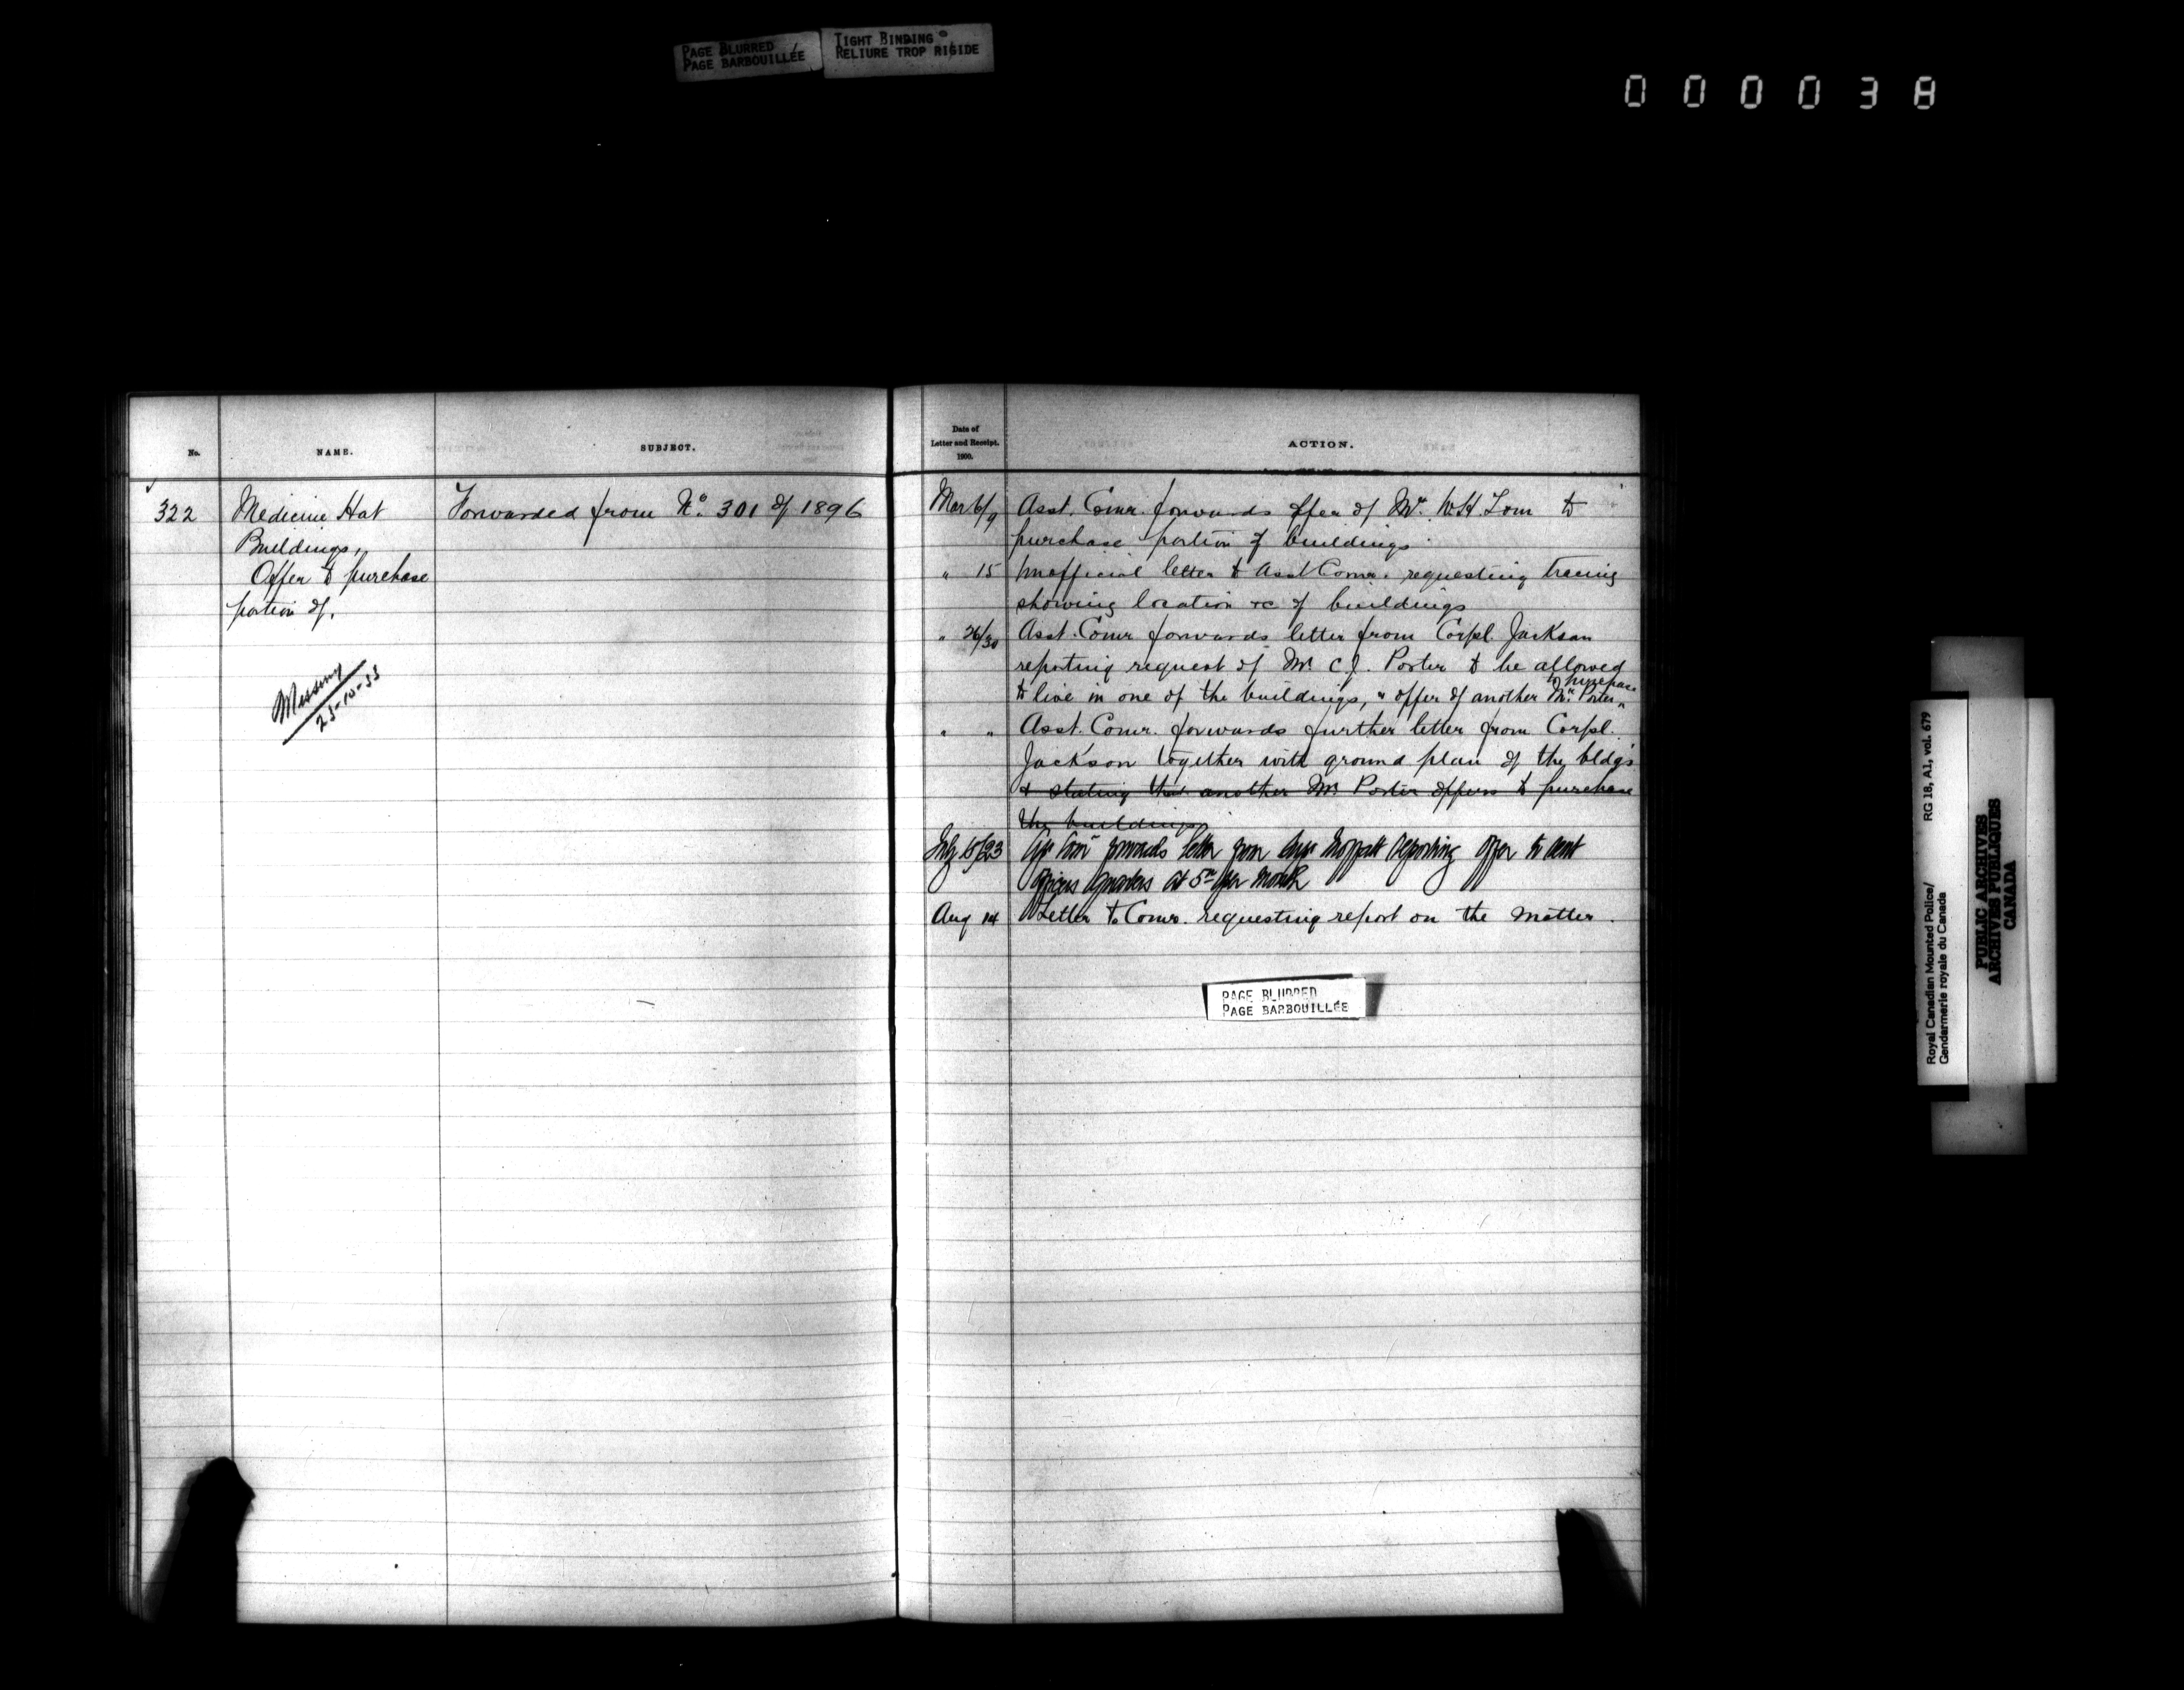 PAGE BLURRED
PAGE BARBOUILLÉE
TIGHT BINDING
RELIURE TROP RIGIDE
000038
No.
NAME.
SUBJECT.
322
Medicine Hat
Buildings,
Offer to purchase
portion of.
Forwarded from No. 301 of 1896
Missing
23-10-33
Date of
Letter and Receipt.
1900.
ACTION.
Mar 6/9 Asst. Comr. forwards offer of Mr. W.H. to
purchase portion of buildings
" 15 Unofficial letter to Asst Comr. requesting tracing
showing location &c of buildings
" 26/30 Asst. Comr forwards letter from Corpl. Jackson
reporting request of Mr. C.J. Porter to be allowed
to purchase
to live in one of the buildings, & offer of another Mr. Porter "
" " Asst. Comr. forwards further letter from Corpl.
Jackson together with ground plan of the bldgs
& stating that another Mr. Porter offers to purchase
the buildings
July 15/23 forwards letter from Moffatt reporting offer to rent
Officers Quarters at 5 per month
Aug 14 Letter to Comr. requesting report on the matter.
PAGE BLURRED
PAGE BARBOUILLÉE
Royal Canadian Mounted Police/ RG 18, A1, vol. 679
Gendarmerie royale du Canada
PUBLIC ARCHIVES
ARCHIVES PUBLIQUES
CANADA